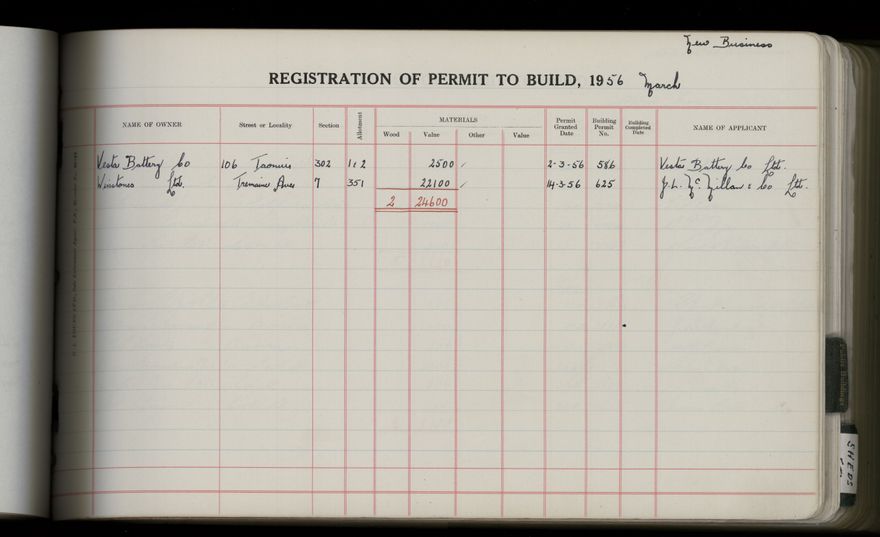 New Business
REGISTRATION OF PERMIT TO BUILD, 1956 March
NAME OF OWNER Street or Locality Section Allotment MATERIALS Wood Value Other Value Permit Granted Date Building Permit No. Building Completed Date NAME OF APPLICANT
Vesta Battery Co 106 Taonuis 302 1 & 2 2500 ✓ 2-3-56 586 Vesta Battery Co Ltd.
Winstones Ltd. Tremaine Ave 7 351 22100 ✓ 14-3-56 625 J. L. McMillan & Co Ltd.
2 24600
Public Buildings
SHEDS